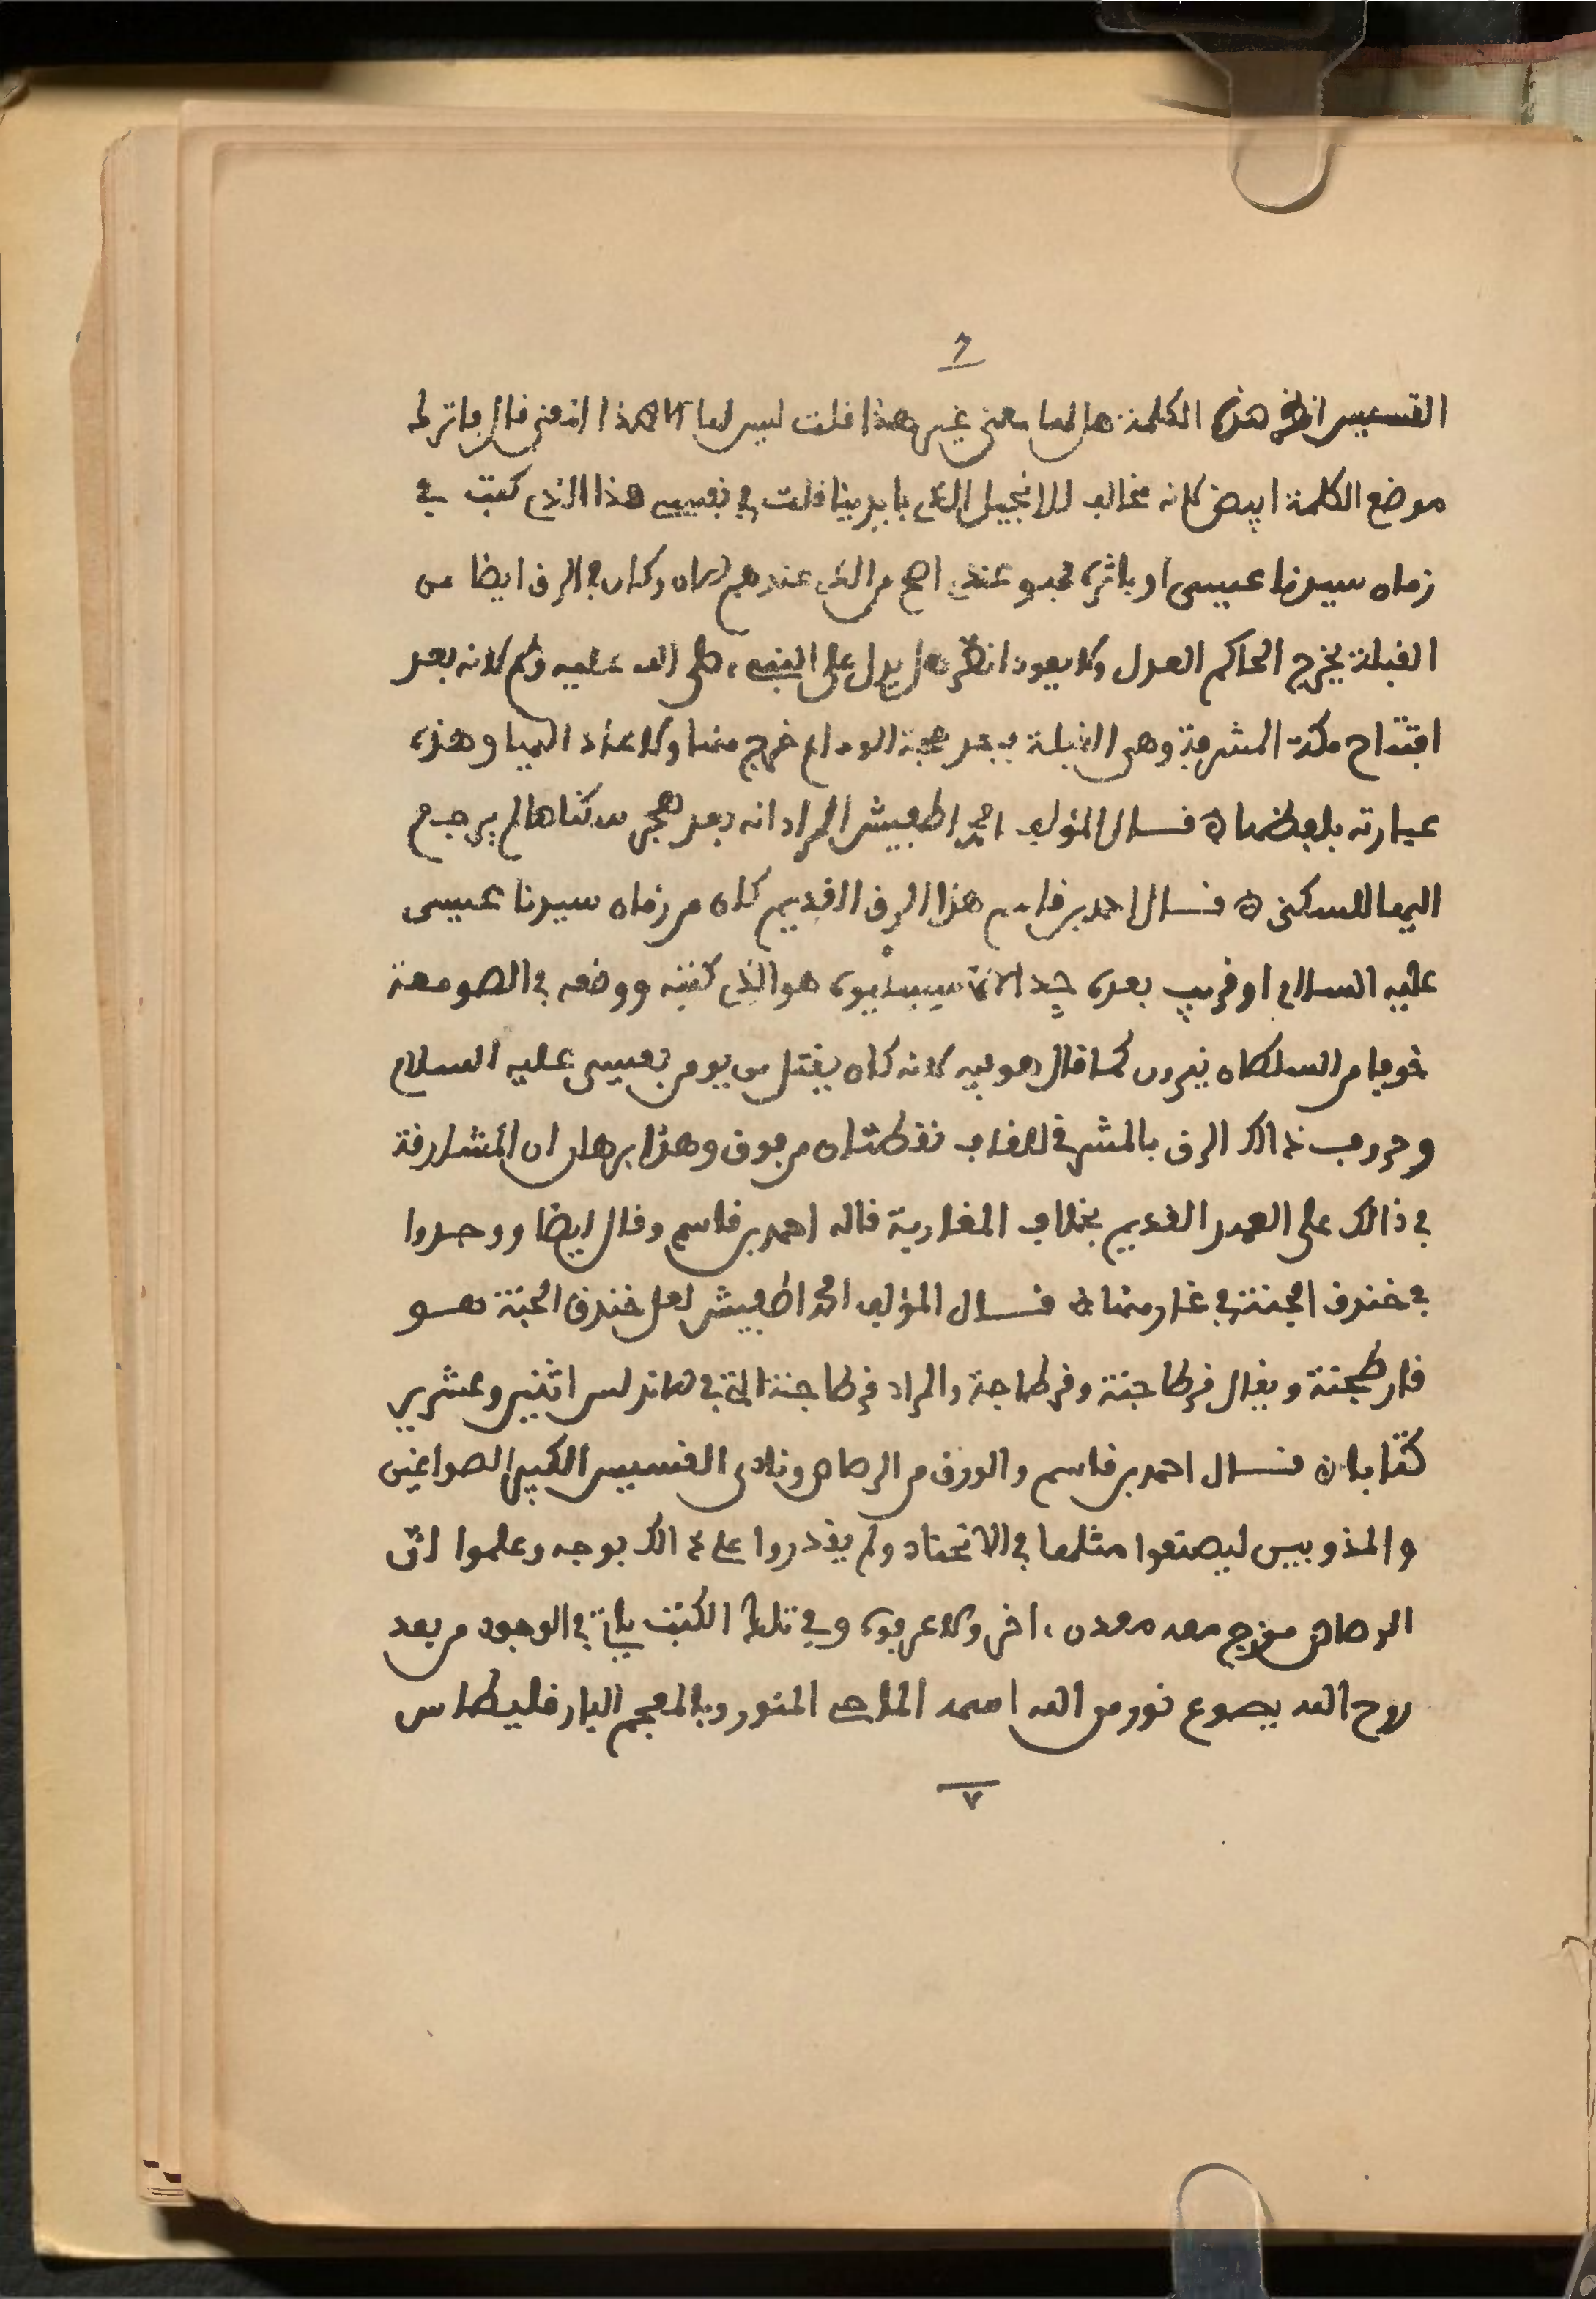 ٦
القسيس انظر هذه الكلمة هل لها معنى غير هذا قلت ليس لها الا هذا المعنى قال فاترك
موضع الكلمة ابيض لانه مخالف للانجيل الذي بايدينا قلت في نفسي هذا الذي كتب في
زمان سيدنا عيسى او باثره فهو عندي اصح من الذي عندهم الان وكان في الرق ايضا من
القبلة يخرج الحاكم العدل ولا يعود انظر هل يدل على النبي صلى الله عليه وسلم لانه بعد
افتتاح مكة المشرفة وهي القبلة وبعد حجة الوداع خرج منها ولا عاد اليها وهذه
عبارته بلفظها قال المؤلف امحمد اطفيش المراد انه بعد هجر سكناها لم يرجع
اليها للسكنى قال احمد بن قاسم هذا الرق القديم كان من زمان سيدنا عيسى
عليه السلام او قريب بعده جدا لان هو الذي كتبه ووضعه في الصومعة
خوفا من السلطان نيرون كما قال هو فيه لانه كان يقتل من يومن بعيسى عليه السلام
وحروف ذالك الرق بالمشرقي للقاف نقطتان من فوق وهذا برهان ان المشارقة
في ذالك على العهد القديم بخلاف المغاربة قاله احمد بن قاسم وقال ايضا ووجدوا
في خندق الجنة في غار منها قال المؤلف امحمد اطفيش لعل خندق الجنة هو
قارطجنة ويقال قرطاجنة وقرطاجة والمراد قرطاجنة التي في الاندلس اثنين وعشرين
كتابا قال احمد بن قاسم والورق من الرصاص ونادى القسيس الكبير الصواغين
والمذوبين ليصنعوا مثلها في الاتحاد ولم يقدروا على ذالك بوجه وعلموا ان
الرصاص مزج معه معدن اخر ولا عرفوه وفي تلك الكتب ياتي في الوجود من بعد
روح الله يصوع نور من الله اسمه الملاحي المنور وبالمعجم البارقليطاس
٧